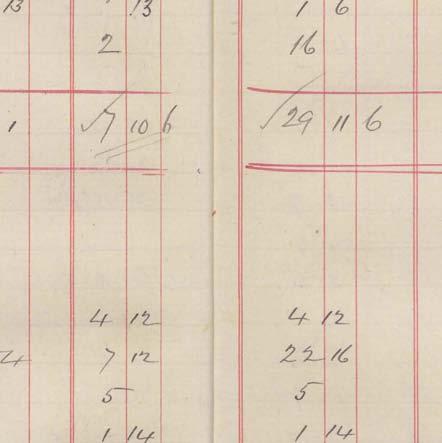 13 13 1 6
2 16
1 √7 10 6 √29 11 6
4 12 4 12
4 7 12 22 16
5 5
1 14 1 14